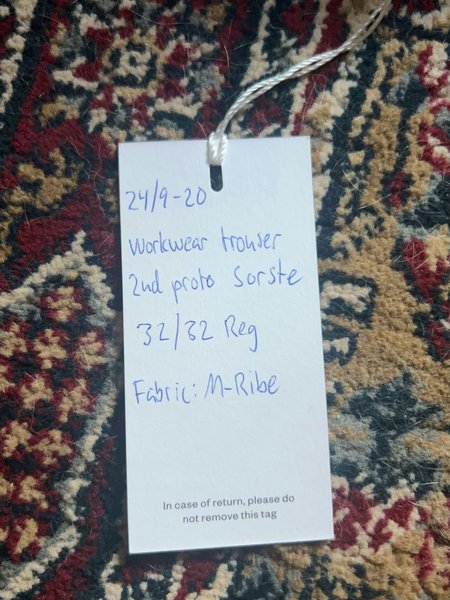 24/9-20
Workwear trouser
2nd proto Sorste
32/32 Reg
Fabric: M-Ribe
In case of return, please do
not remove this tag